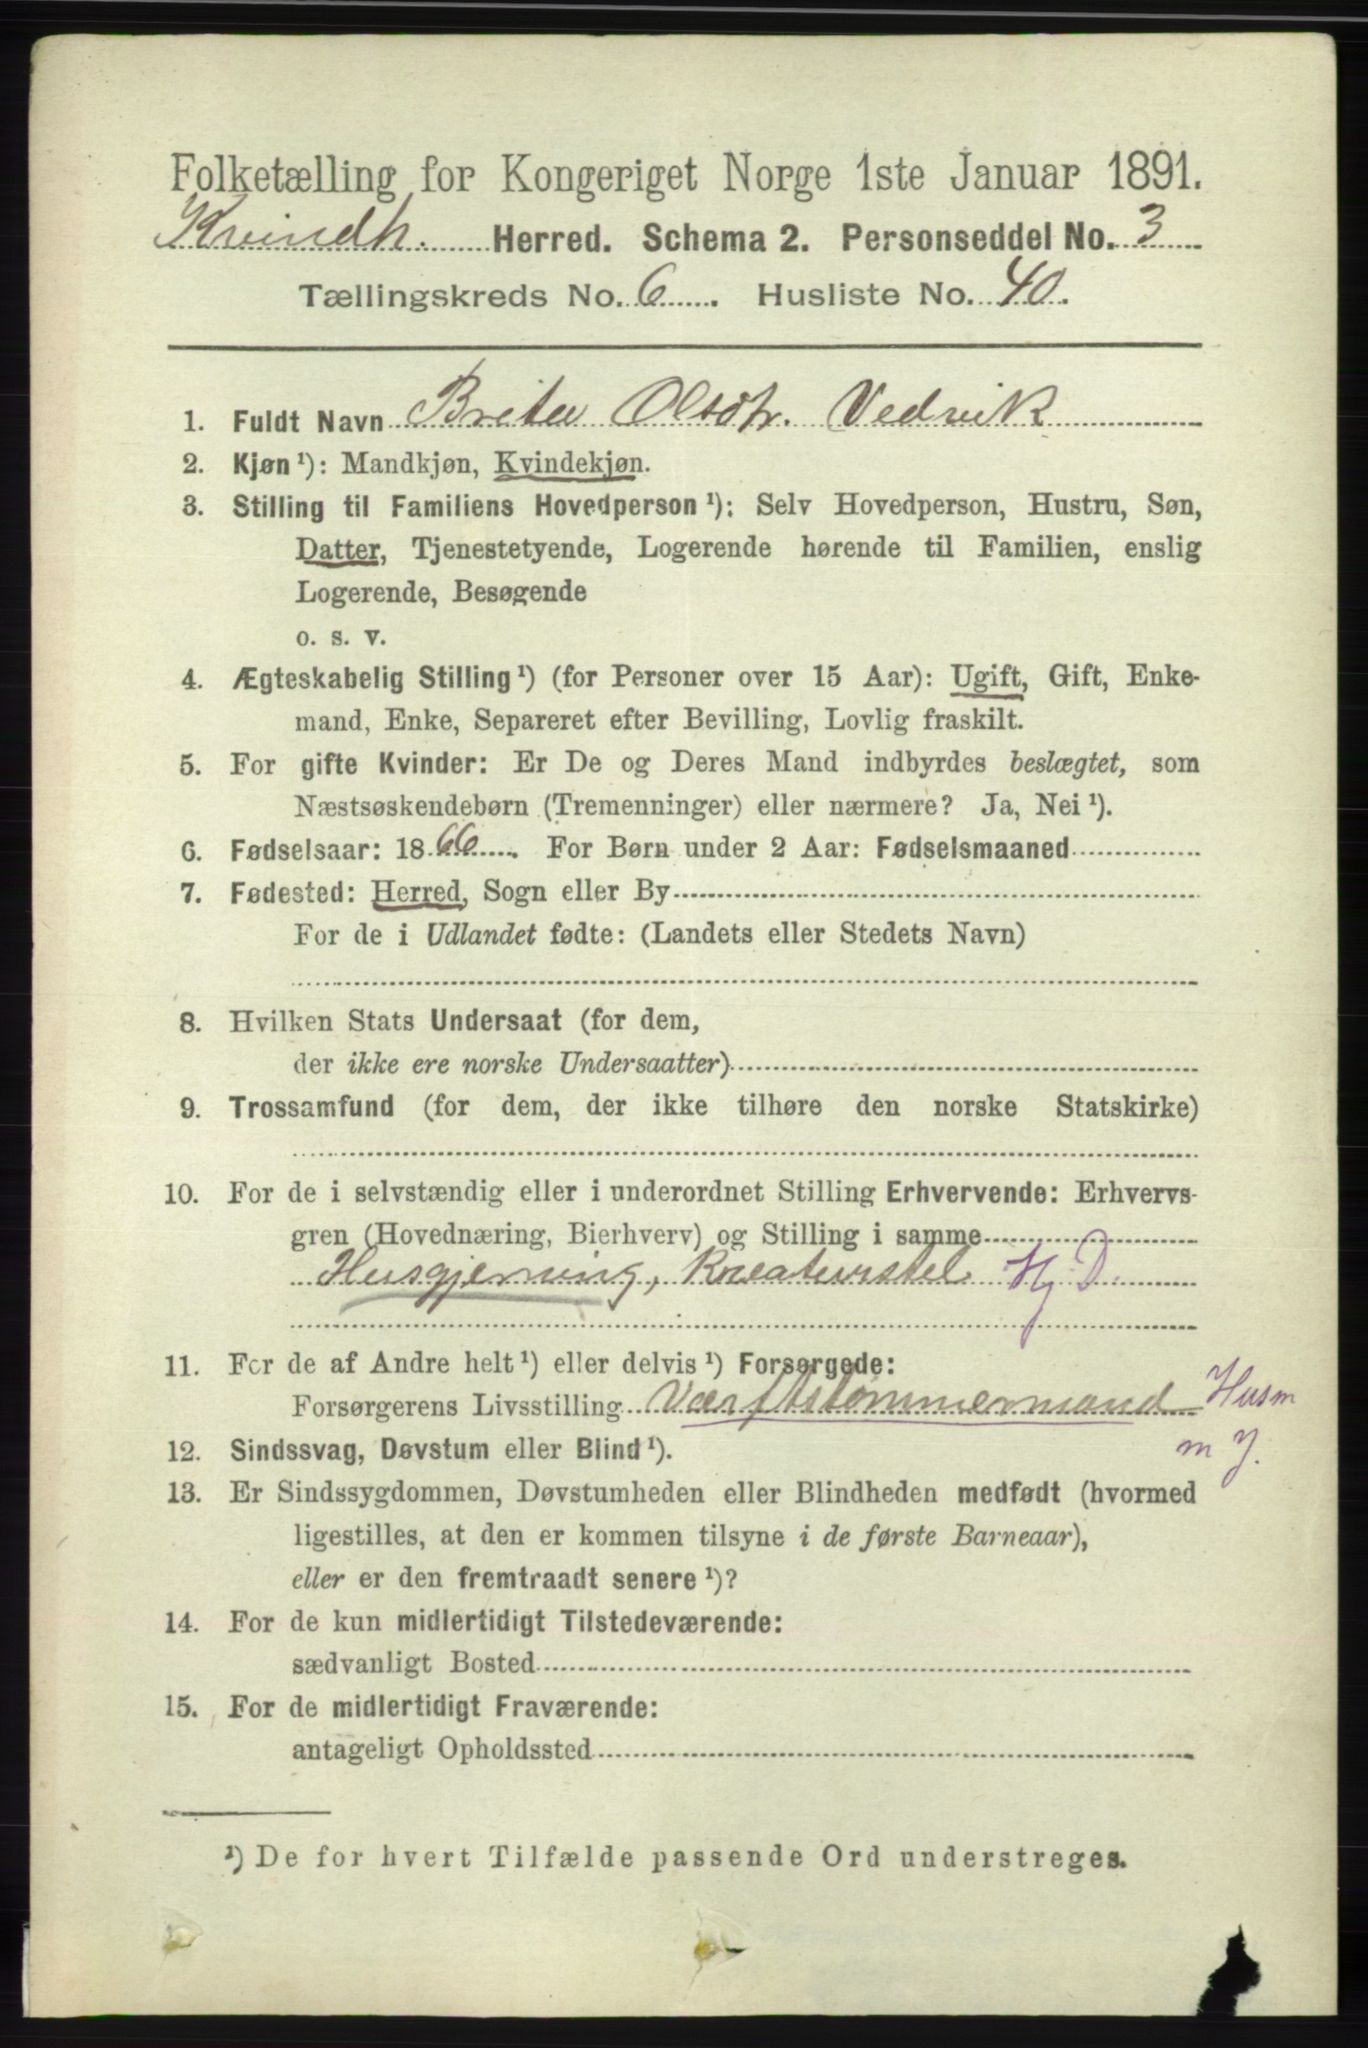 Folketælling for Kongeriget Norge 1ste Januar 1891.
Kvindh. Herred. Schema 2. Personseddel No. 3
Tællingskreds No. 6 . Husliste No. 40.
1. Fuldt Navn Brita Olsdtr. Vedvik
2. Kjøn ¹): Mandkjøn, Kvindekjøn.
3. Stilling til Familiens Hovedperson ¹): Selv Hovedperson, Hustru, Søn,
Datter, Tjenestetyende, Logerende hørende til Familien, enslig
Logerende, Besøgende
o. s. v.
4. Ægteskabelig Stilling ¹) (for Personer over 15 Aar): Ugift, Gift, Enke-
mand, Enke, Separeret efter Bevilling, Lovlig fraskilt.
5. For gifte Kvinder: Er De og Deres Mand indbyrdes beslægtet, som
Næstsøskendebørn (Tremenninger) eller nærmere? Ja, Nei ¹).
6. Fødselsaar: 1866 . For Børn under 2 Aar: Fødselsmaaned
7. Fødested: Herred, Sogn eller By
For de i Udlandet fødte: (Landets eller Stedets Navn)
8. Hvilken Stats Undersaat (for dem,
der ikke ere norske Undersaatter)
9. Trossamfund (for dem, der ikke tilhøre den norske Statskirke)
10. For de i selvstændig eller i underordnet Stilling Erhvervende: Erhvervs-
gren (Hovednæring, Bierhverv) og Stilling i samme
Husgjerning, Kreaturstel Hj D.
11. For de af Andre helt ¹) eller delvis ¹) Forsørgede:
Forsørgerens Livsstilling Værftstømmermand Husm
m J.
12. Sindssvag, Døvstum eller Blind ¹).
13. Er Sindssygdommen, Døvstumheden eller Blindheden medfødt (hvormed
ligestilles, at den er kommen tilsyne i de første Barneaar),
eller er den fremtraadt senere ¹)?
14. For de kun midlertidigt Tilstedeværende:
sædvanligt Bosted
15. For de midlertidigt Fraværende:
antageligt Opholdssted
¹) De for hvert Tilfælde passende Ord understreges.